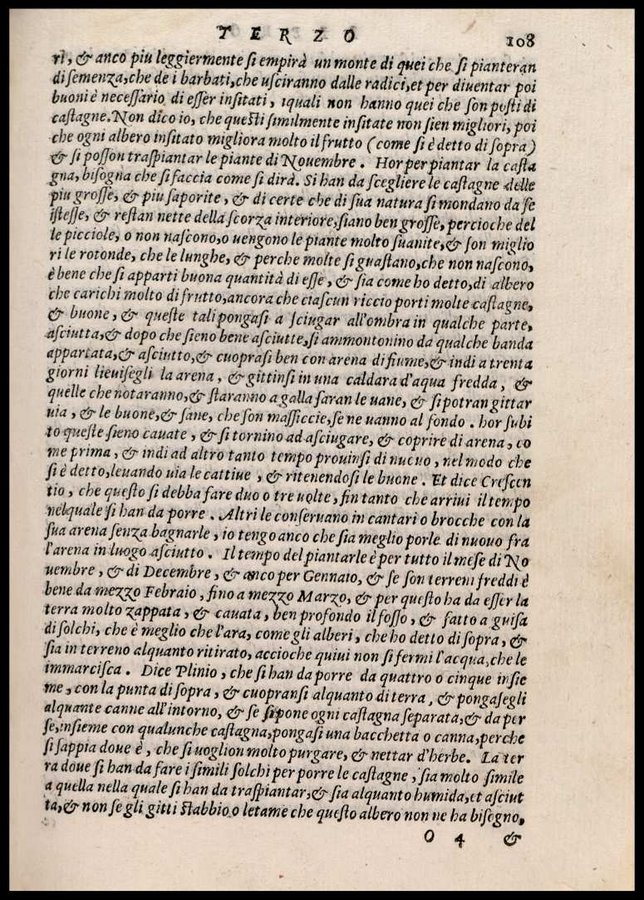 TERZO 108
ri, & anco piu leggiermente si empirà un monte di quei che si pianteran
di semenza, che de i barbati, che usciranno dalle radici, et per diuentar poi
buoni è necessario di esser insitati, iquali non hanno quei che son posti di
castagne. Non dico io, che questi similmente insitate non sien migliori, poi
che ogni albero insitato migliora molto il frutto (come si è detto di sopra)
& si posson traspiantar le piante di Nouembre. Hor per piantar la casta
gna, bisogna che si faccia come si dirà. Si han da scegliere le castagne delle
piu grosse, & piu saporite, & di certe che di sua natura si mondano da se
istesse, & restan nette della scorza interiore, siano ben grosse, percioche del
le picciole, o non nascono, o uengono le piante molto suanite, & son miglio
ri le rotonde, che le lunghe, & perche molte si guastano, che non nascono,
è bene che si apparti buona quantità di esse, & sia come ho detto, di albero
che carichi molto di frutto, ancora che ciascun riccio porti molte castagne,
& buone, & queste tali pongasi a sciugar all'ombra in qualche parte,
asciutta, & dopo che sieno bene asciutte, si ammontonino da qualche banda
appartata, & asciutto, & cuoprasi ben con arena di fiume, & indi a trenta
giorni lieuisegli la arena, & gittinsi in una caldara d'aqua fredda, &
quelle che notaranno, & staranno a galla saran le uane, & si potran gittar
uia, & le buone, & sane, che son massiccie, se ne uanno al fondo. hor subi
to queste sieno cauate, & si tornino ad asciugare, & coprire di arena, co
me prima, & indi ad altro tanto tempo prouinsi di nuouo, nel modo che
si è detto, leuando uia le cattiue, & ritenendosi le buone. Et dice Crescen
tio, che questo si debba fare duo o tre uolte, fin tanto che arriui il tempo
nelquale si han da porre. Altri le conseruano in cantari o brocche con la
sua arena senza bagnarle, io tengo anco che sia meglio porle di nuouo fra
l'arena in luogo asciutto. Il tempo del piantarle è per tutto il mese di No
uembre, & di Decembre, & anco per Gennaro, & se son terreni freddi è
bene da mezzo Febraio, fino a mezzo Marzo, & per questo ha da esser la
terra molto zappata, & cauata, ben profondo il fosso, & fatto a guisa
di solchi, che è meglio che l'ara, come gli alberi, che ho detto di sopra, &
sia in terreno alquanto ritirato, accioche quiui non si fermi l'acqua, che le
immarcisca. Dice Plinio, che si han da porre da quattro o cinque insie
me, con la punta di sopra, & cuopransi alquanto di terra, & pongasegli
alquante canne all'intorno, & se si pone ogni castagna separata, & da per
se, insieme con qualunche castagna, pongasi una bacchetta o canna, perche
si sappia doue è, che si uoglion molto purgare, & nettar d'herbe. La ter
ra doue si han da fare i simili solchi per porre le castagne, sia molto simile
a quella nella quale si han da traspiantar, & sia alquanto humida, et asciut
ta, & non se gli gitti stabbio o letame che questo albero non ne ha bisogno,
O 4 &